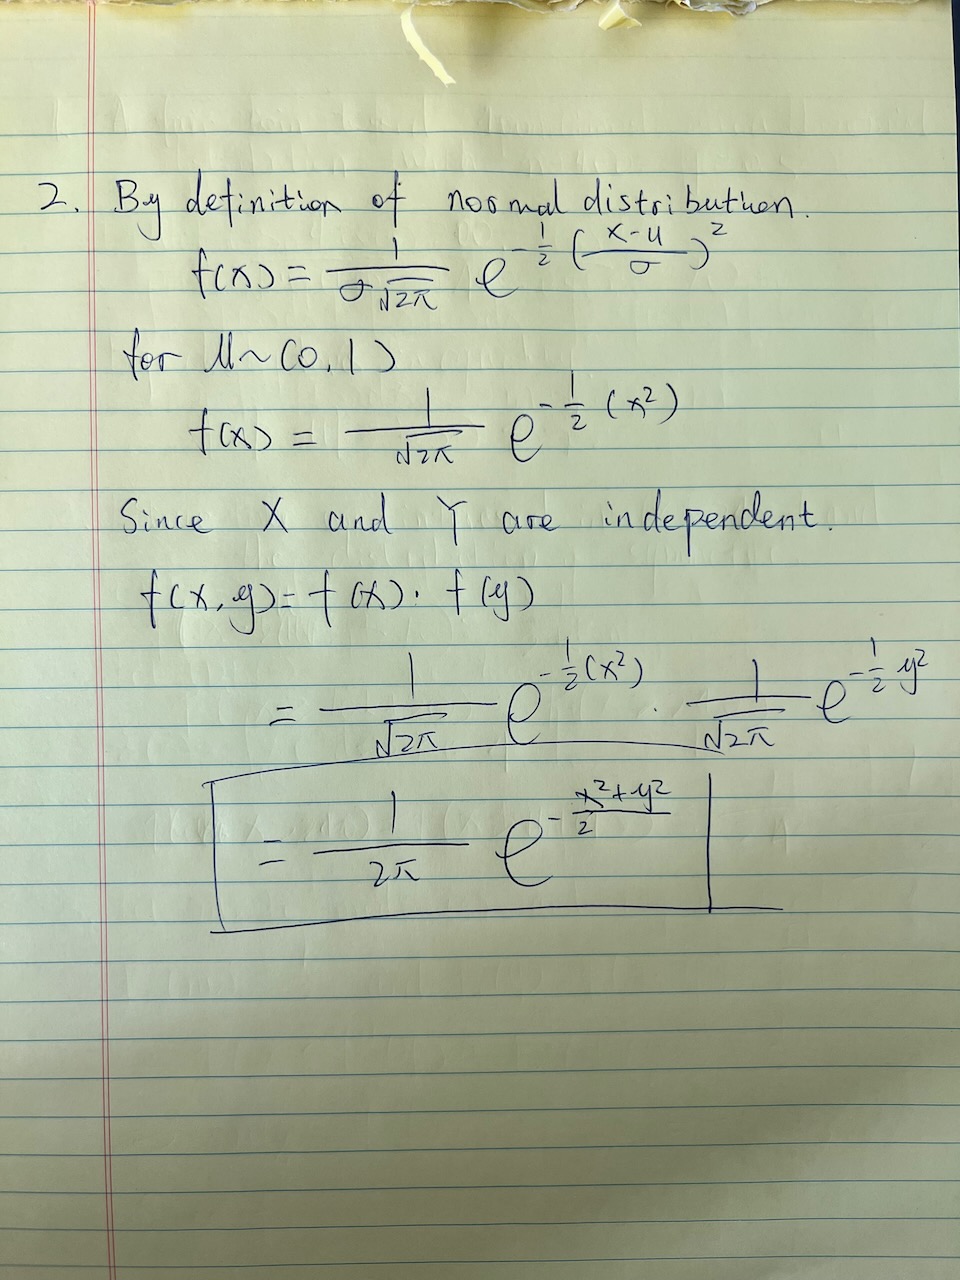 2. By definition of normal distribution.
f(x) = 1/(σ√2π) e^(-1/2 ((x-u)/σ)^2)
for U~(0,1)
f(x) = 1/√2π e^(-1/2 (x²))
Since X and Y are independent.
f(x,y) = f(x) · f(y)
= 1/√2π e^(-1/2 (x²)) · 1/√2π e^(-1/2 y²)
= 1/2π e^(-(x²+y²)/2)